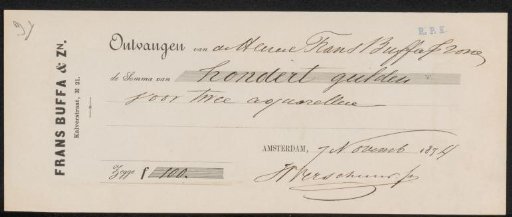 R.P.K
FRANS BUFFA & ZN.
Kalverstraat, N 21.
Ontvangen van de Heeren Frans Buffa & zonen
de Somma van hondert gulden
voor twee aquarellen
AMSTERDAM, 7 November 1894
Zegge f 100.